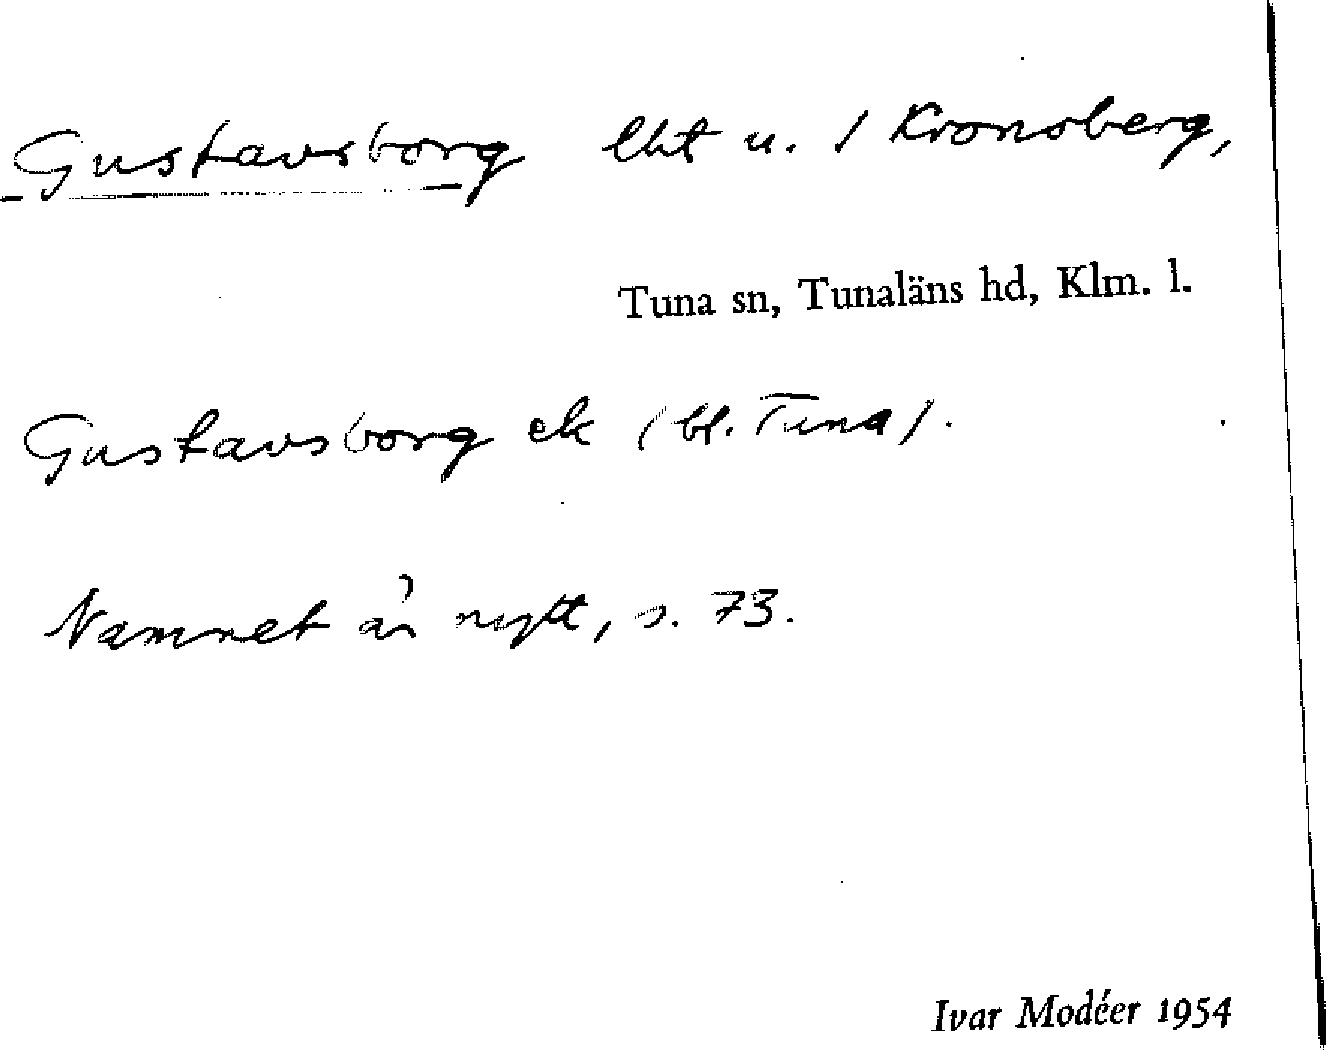 Gustavsborg lht u. 1 Kronoberg,
Tuna sn, Tunaläns hd, Klm. l.
Gustavsborg ek (bl. Tuna).
Namnet är nytt, s. 73.
Ivar Modéer 1954